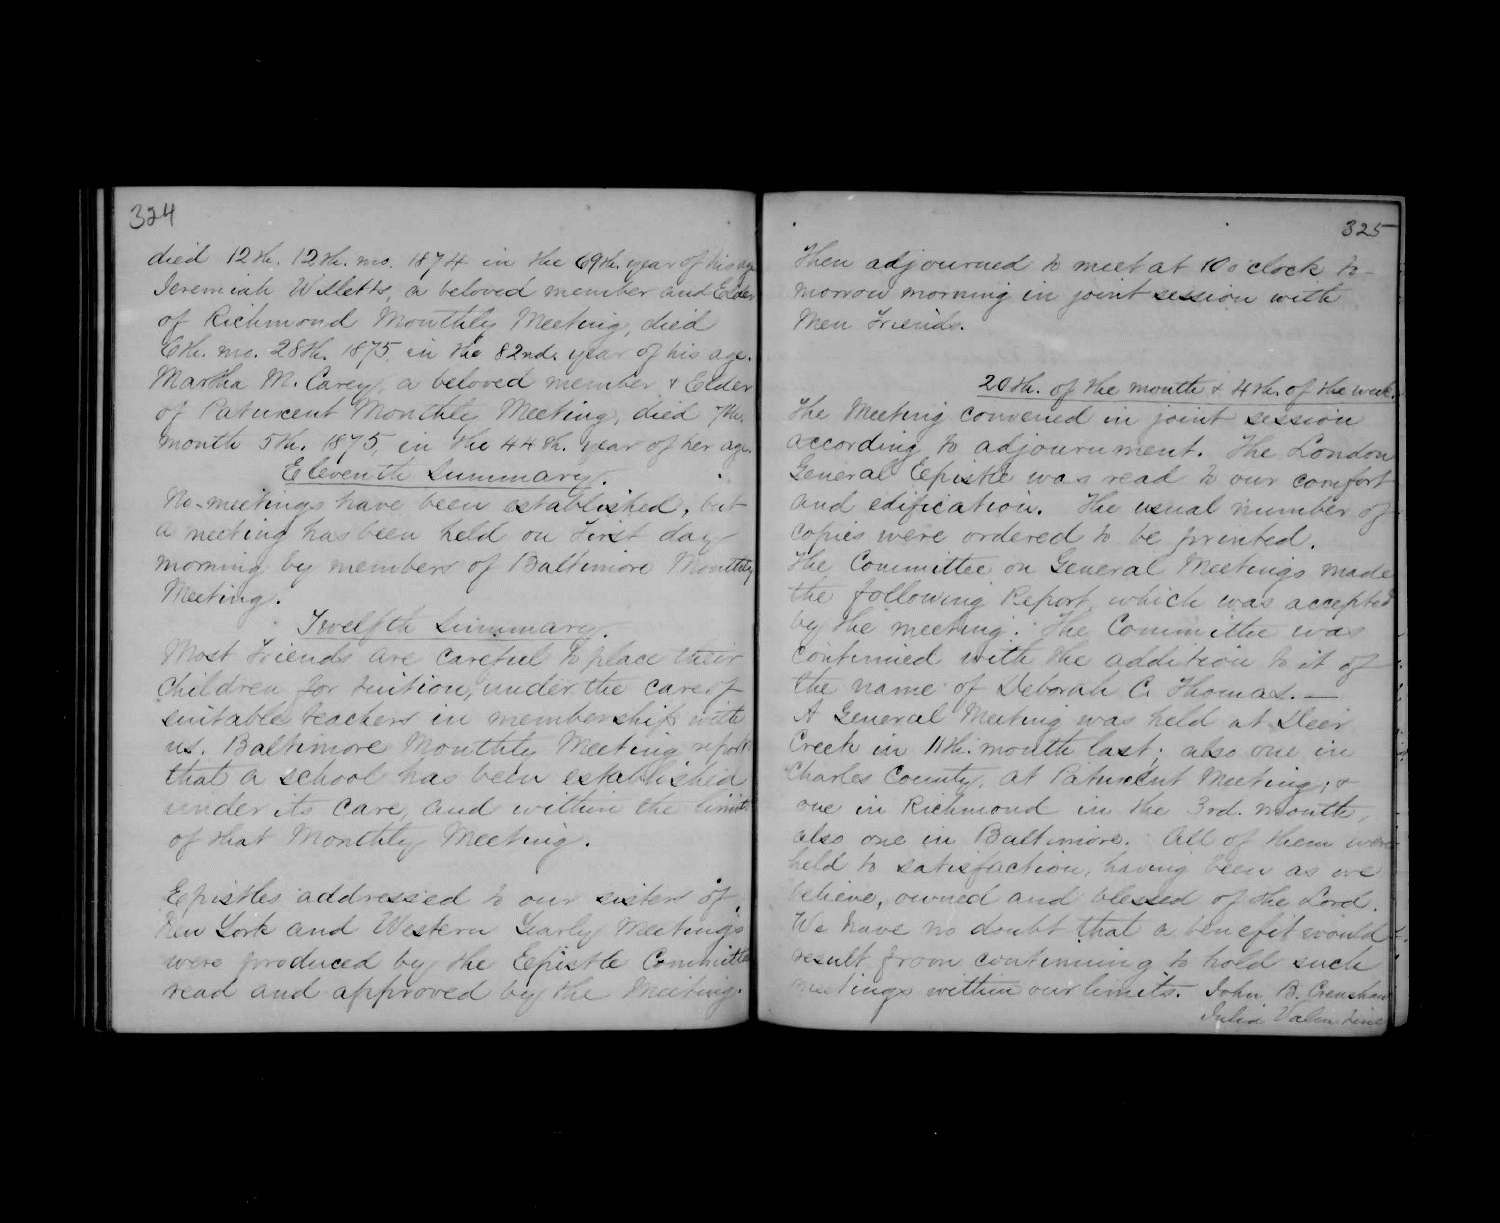 324
died 12th. 12th. mo. 1874 in the 69th. year of his age
Jeremiah Willetts, a beloved member and Elder
of Richmond Monthly Meeting, died
6th. mo. 28th. 1875, in the 82nd. year of his age.
Martha M. Carey, a beloved member & Elder
of Patuxent Monthly Meeting, died 7th.
month 5th. 1875, in the 44th. year of her age.
Eleventh Summary.
No meetings have been established, but
a meeting has been held on First day
morning by members of Baltimore Monthly
Meeting.
Twelfth Summary.
Most Friends are careful to place their
children for tuition, under the care of
suitable teachers in membership with
us. Baltimore Monthly Meeting reports
that a school has been established
under its care, and within the limits
of that Monthly Meeting.
Epistles addressed to our sisters of
New York and Western Yearly Meetings
were produced by the Epistle Committee
read and approved by the Meeting.
325
Then adjourned to meet at 10 o'clock to-
morrow morning in joint session with
Men Friends.
20th. of the month & 4th. of the week.
The Meeting convened in joint session
according to adjournment. The London
General Epistle was read to our comfort
and edification. The usual number of
copies were ordered to be printed.
The Committee on General Meetings made
the following Report, which was accepted
by the meeting. The Committee was
continued with the addition to it of
the name of Deborah C. Thomas. —
A General Meeting was held at Deer
Creek in 11th. month last; also one in
Charles County, at Patuxent Meeting; &
one in Richmond in the 3rd. month,
also one in Baltimore. All of them were
held to satisfaction, having been as we
believe, owned and blessed of the Lord.
We have no doubt that a benefit would
result from continuing to hold such
meetings within our limits. John B. Crenshaw
Julia Valentine